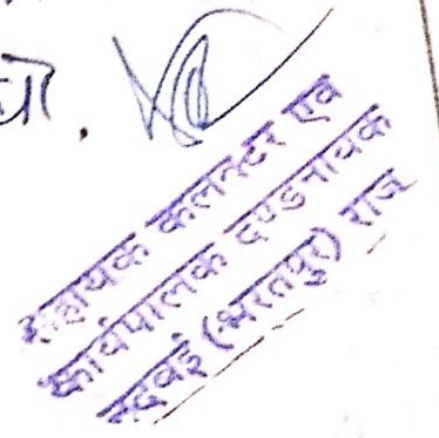 सहायक कलक्टर एवं
कार्यपालक दण्डनायक
नदबई (भरतपुर) राज.